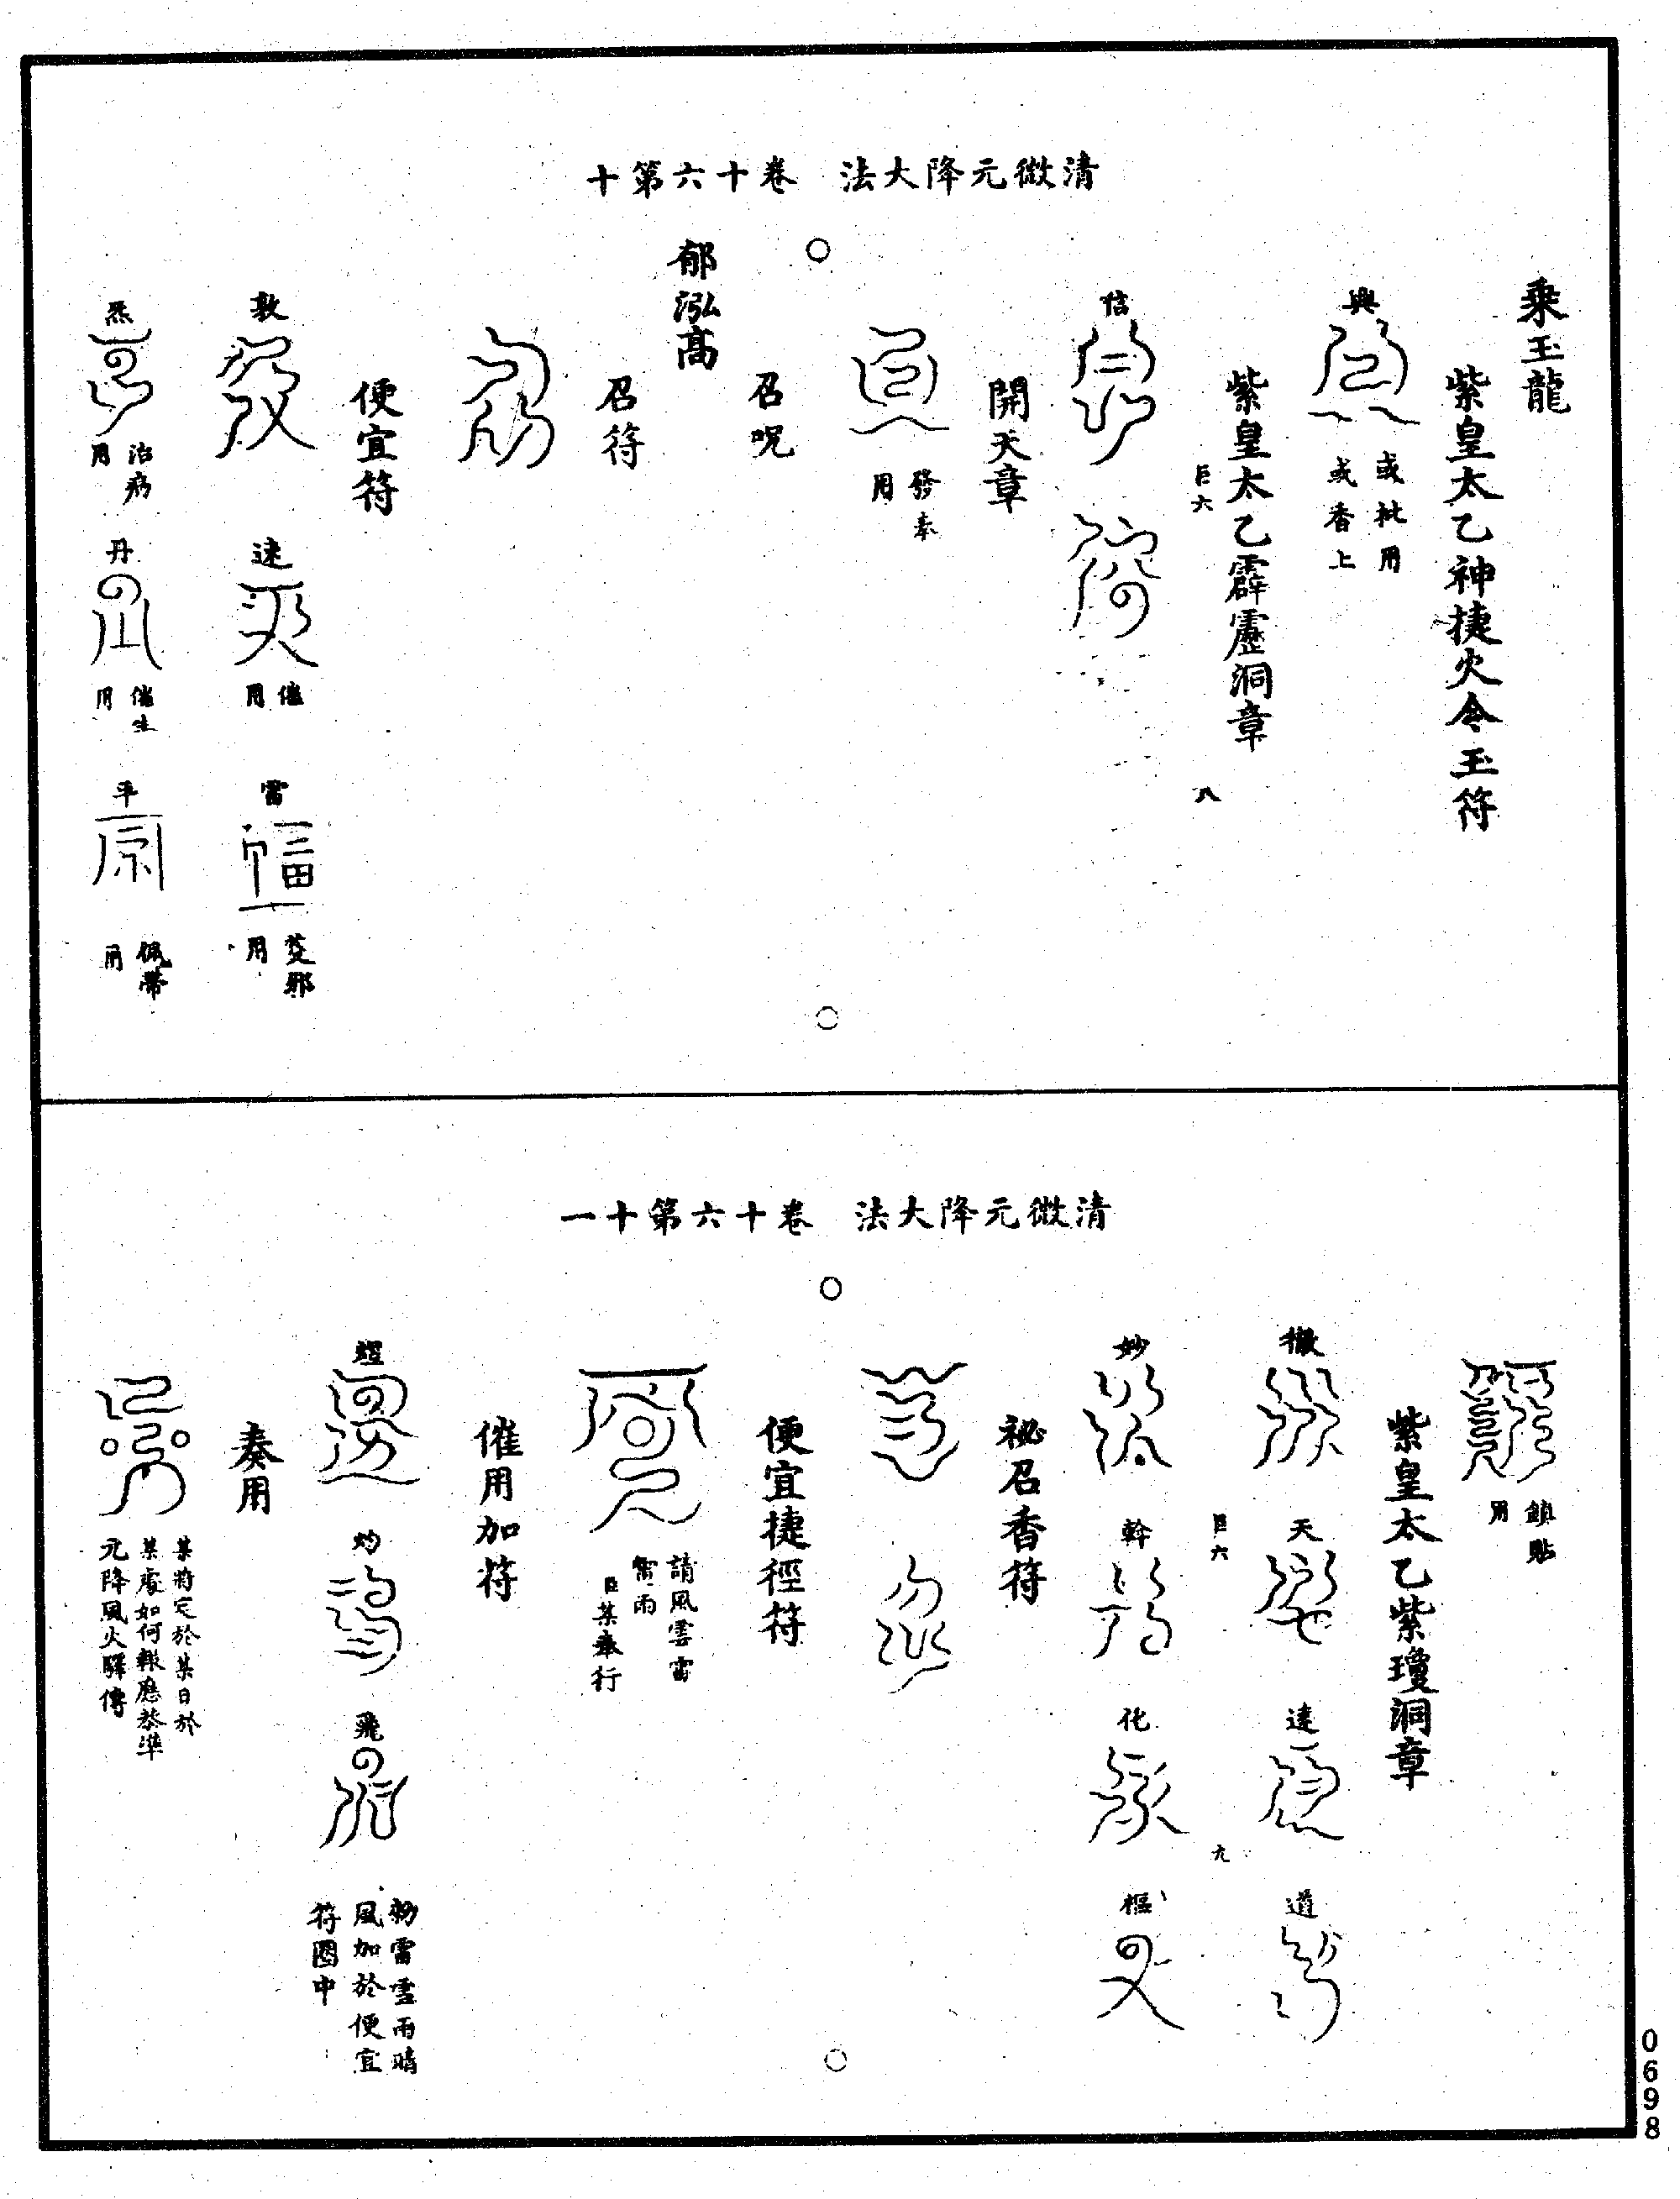 清微元降大法 卷十六第十
乘玉龍
紫皇太乙神捷火令玉符
興
或批用
或香上
紫皇太乙霹靂洞章
巨六 八
信
開天章
發奏
用
召呪
郁泓高
召符
便宜符
敦
速
催
用
雷
芟邪
用
炁
治病
用
丹
催生
用
平
佩帶
用
清微元降大法 卷十六第十一
鎮貼
用
紫皇太乙紫瓊洞章
徹
天
達
道
巨六 九
妙
幹
化
樞
祕召香符
便宜捷徑符
請風雲雷
雷雨
臣某奉行
催用加符
灼
飛
物雷雲雨晴
風加於便宜
符圈中
奏用
某符定於某日於
某處如何報應恭準
元降風火驛傳
0698